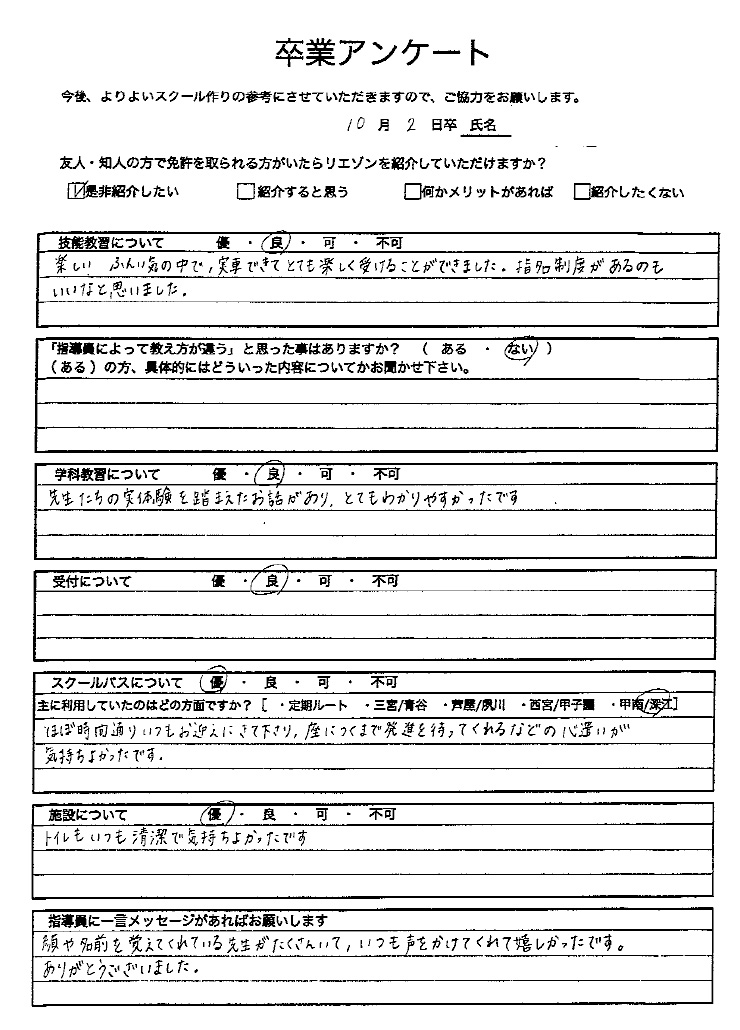 卒業アンケート
今後、よりよいスクール作りの参考にさせていただきますので、ご協力をお願いします。
10月2日卒 氏名
友人・知人の方で免許を取られる方がいたらリエゾンを紹介していただけますか？
是非紹介したい 紹介すると思う 何かメリットがあれば 紹介したくない
技能教習について 優・良・可・不可
楽しい ふんい気の中で、実車できてとても楽しく受けることができました。指名制度があるのも
いいなと思いました。
「指導員によって教え方が違う」と思った事はありますか？（ある・ない）
（ある）の方、具体的にはどういった内容についてかお聞かせ下さい。
学科教習について 優・良・可・不可
先生たちの実体験を踏まえたお話があり、とてもわかりやすかったです
受付について 優・良・可・不可
スクールバスについて 優・良・可・不可
主に利用していたのはどの方面ですか？［・定期ルート ・三宮/青谷 ・芦屋/夙川 ・西宮/甲子園 ・甲南/深江］
ほぼ時間通りいつもお迎えにきて下さり、座につくまで発進を待ってくれるなどの心遣いが
気持ちよかったです。
施設について 優・良・可・不可
トイレもいつも清潔で気持ちよかったです
指導員に一言メッセージがあればお願いします
顔や名前を覚えてくれている先生がたくさんいて、いつも声をかけてくれて嬉しかったです。
ありがとうございました。